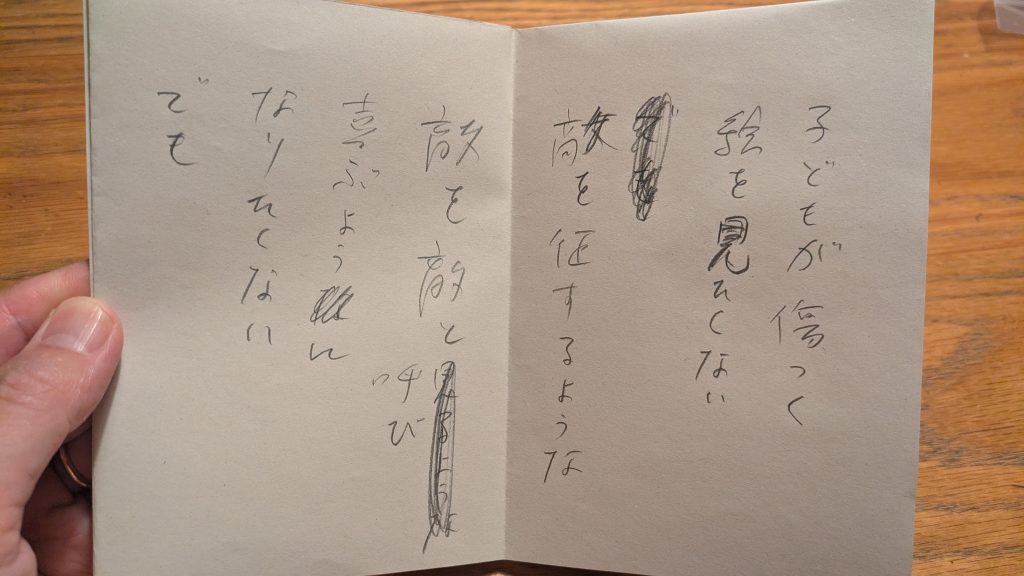 子どもが傷つく
絵を見たくない
敵を征するような
敵を敵と呼び
喜ぶように
なりたくない
でも